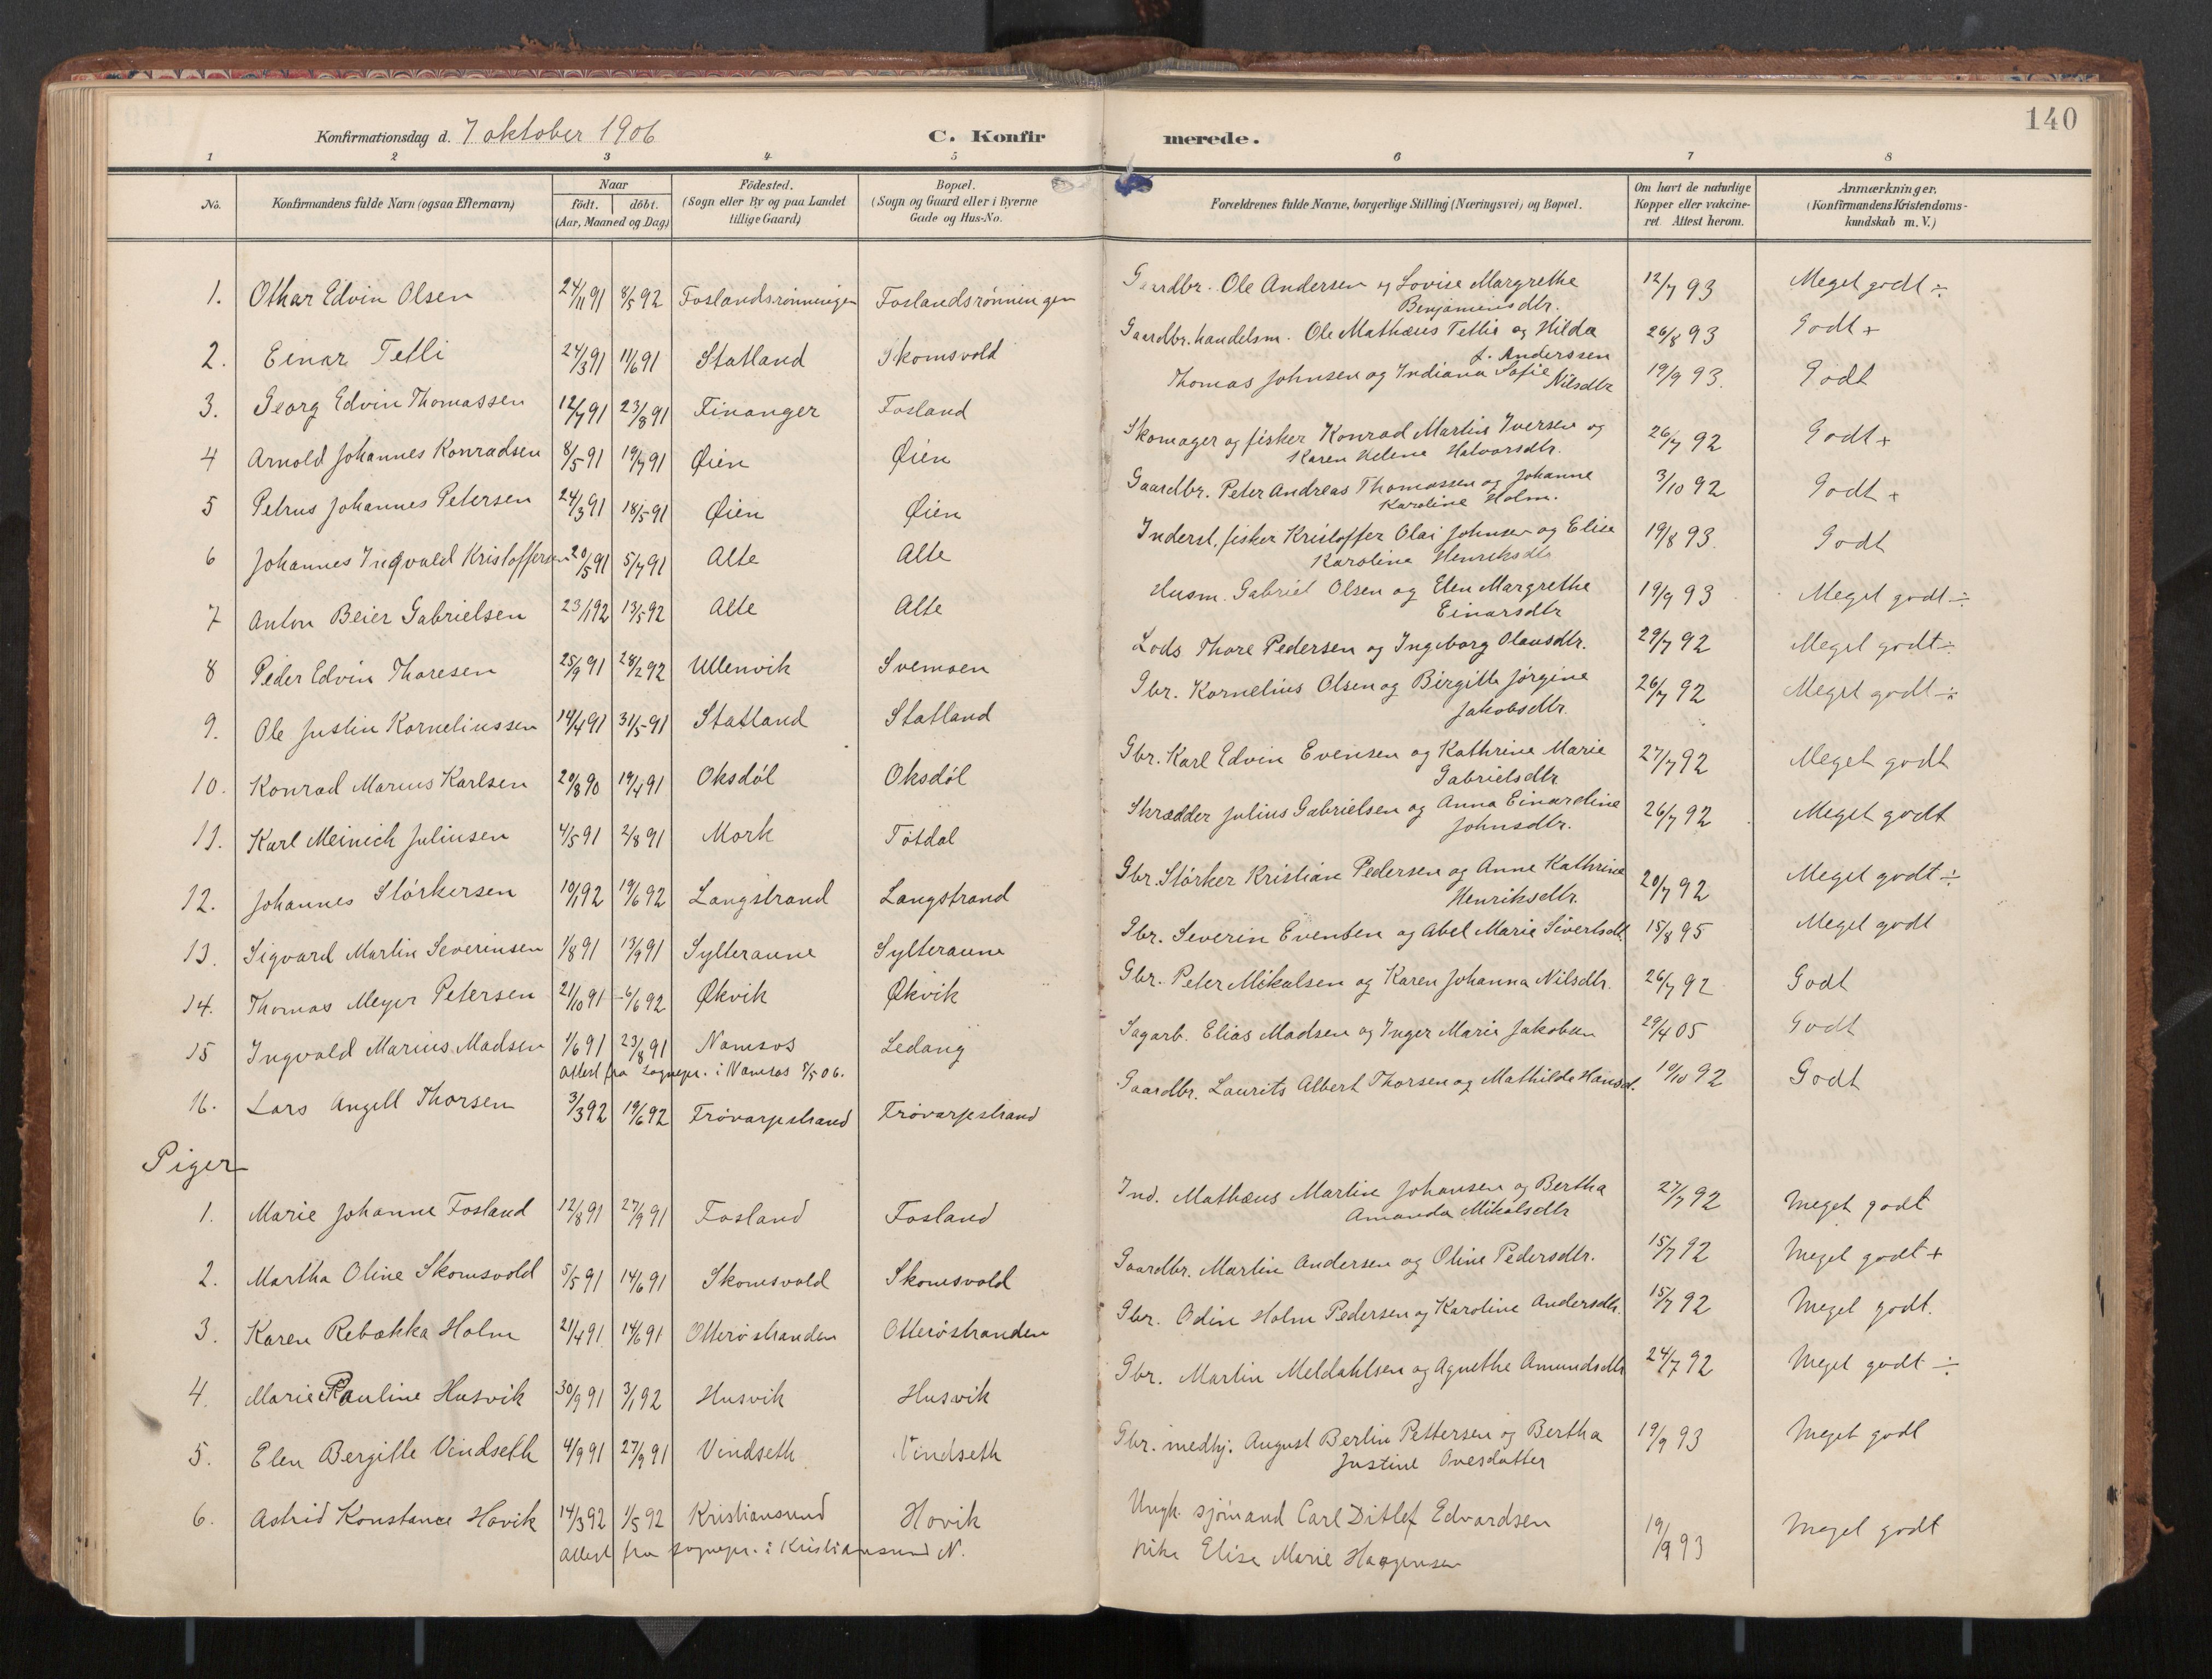 140
Konfirmationsdag d. 7 oktober 1906 C. Konfirmerede.
1 2 3 4 5 6 7 8
No. Konfirmandens fulde Navn (ogsaa Efternavn) Naar født. døbt. (Aar, Maaned og Dag) Födested. (Sogn eller By og paa Landet tillige Gaard) Bopæl. (Sogn og Gaard eller i Byerne Gade og Hus-No. Forældrenes fulde Navne, borgerlige Stilling (Næringsvei) og Bopæl. Om havt de naturlige Kopper eller vakcineret. Attest herom. Anmærkninger. (Konfirmandens Kristendomskundskab m. V.)
1. Othar Edvin Olsen 24/11 91 8/5 92 Foslandsrønningen Foslandsrønningen Gaardbr. Ole Andersen og Lovise Margrethe 12/7 93 Meget godt ÷
Benjaminsdtr.
2. Einar Tetli 24/3 91 11/6 91 Statland Skomsvold Gaardbr. handelsm. Ole Mathæus Tetlie og Hilda 26/8 93 Godt +
L. Anderssen
3. Georg Edvin Thomassen 12/7 91 23/8 91 Finanger Fosland Thomas Johnsen og Indiana Sofie 19/9 93. Godt
Nilsdtr
4 Arnold Johannes Konradsen 8/5 91 19/7 91 Øien Øien Skomager og fisker Konrad Martin Iversen og 26/7 92 Godt +
Karen Helene Halvorsdtr.
5 Petrus Johannes Petersen 24/3 91 18/5 91 Øien Øien Gaardbr. Peter Andreas Thomassen og Johanne 3/10 92 Godt +
Karoline Holm.
6 Johannes Ingvald Kristoffersen 20/5 91 5/7 91 Alte Alte Inderst, fisker Kristoffer Olai Johnsen og Elise 19/8 93. Godt
Karoline Henriksdtr
7 Anton Beier Gabrielsen 23/1 92 13/5 92 Alte Alte Husm. Gabriel Olsen og Elen Margrethe 19/9 93 Meget godt ÷
Einarsdtr
8 Peder Edvin Thoresen 25/9 91 28/2 92 Ullenvik Svemoen Lods Thore Pedersen og Ingeborg Olausdtr. 29/7 92 Meget godt ÷
9. Ole Justin Korneliussen 14/4 91 31/5 91 Statland Statland Gbr. Kornelius Olsen og Birgitte Jørgine 26/7 92 Meget godt ÷
Jakobsdtr.
10. Konrad Marius Karlsen 20/8 90 19/4 91 Oksdøl Oksdøl Gbr. Karl Edvin Evensen og Kathrine Marie 27/7 92 Meget godt
Gabrielsdtr
11. Karl Meinich Juliusen 4/5 91 2/8 91 Mork Tøtdal Skrædder Julius Gabrielsen og Anna Einardine 26/7 92 Meget godt
Johnsdtr.
12. Johannes Størkersen 10/1 92 19/6 92 Langstrand Langstrand Gbr. Størker Kristian Pedersen og Anne Kathrine 20/7 92 Meget godt ÷
Henriksdtr.
13. Sigvard Martin Severinsen 1/8 91 13/9 91 Sylteraune Sylteraune Gbr. Severin Evensen og Abel Marie Sivertsdt. 15/8 95 Meget godt
14. Thomas Meyer Petersen 21/10 91 6/6 92 Økvik Økvik Gbr. Peter Mikalsen og Karen Johanna Nilsdtr. 26/7 92 Godt
15 Ingvald Marius Madsen 1/6 91 23/8 91 Namsos Ledang Sagarb. Elias Madsen og Inger Marie Jakobsen 29/4 05 Godt
attest fra sognepr. i Namsos 7/5 06.
16. Lars Angell Thorsen 3/3 92 19/6 92 Frøvarpstrand Frøvarpstrand Gaardbr. Laurits Albert Thorsen og Mathilde Hansd. 19/10 92 Godt
Piger
1. Marie Johanne Fosland 12/8 91 27/9 91 Fosland Fosland Ind. Mathæus Martin Johansen og Bertha 27/7 92 Meget godt
Amanda Mikalsdtr
2. Martha Oline Skomsvold 5/5 91 14/6 91 Skomsvold Skomsvold Gaardbr. Martin Andersen og Oline Pedersdtr. 15/7 92 Meget godt +
3. Karen Rebekka Holm 21/4 91 14/6 91 Otterøstranden Otterøstranden Gbr. Odin Holm Pedersen og Karoline Andersdtr. 15/7 92 Meget godt.
4. Marie Pauline Husvik 30/9 91 3/1 92 Husvik Husvik Gbr. Martin Meldahlsen og Agnethe Amundsdtr 24/7 92 Meget godt ÷
5. Elen Bergitte Vindseth 4/9 91 27/9 91 Vindseth Vindseth Gbr. medhj. August Berlin Pettersen og Bertha 19/9 93 Meget godt
Justine Ovesdatter
6. Astrid Konstance Hovik 14/3 92 1/5 92 Kristiansund Hovik Ungk. sjømand Carl Ditlef Edvardsen 19/9 93 Meget godt
attest fra sognepr. i Kristiansund N. Pike Elise Marie Haagensen